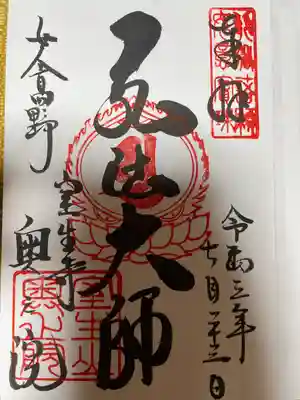 奉拝
令和三年
七月
弘法大師
女人高野
室生寺
奥之院